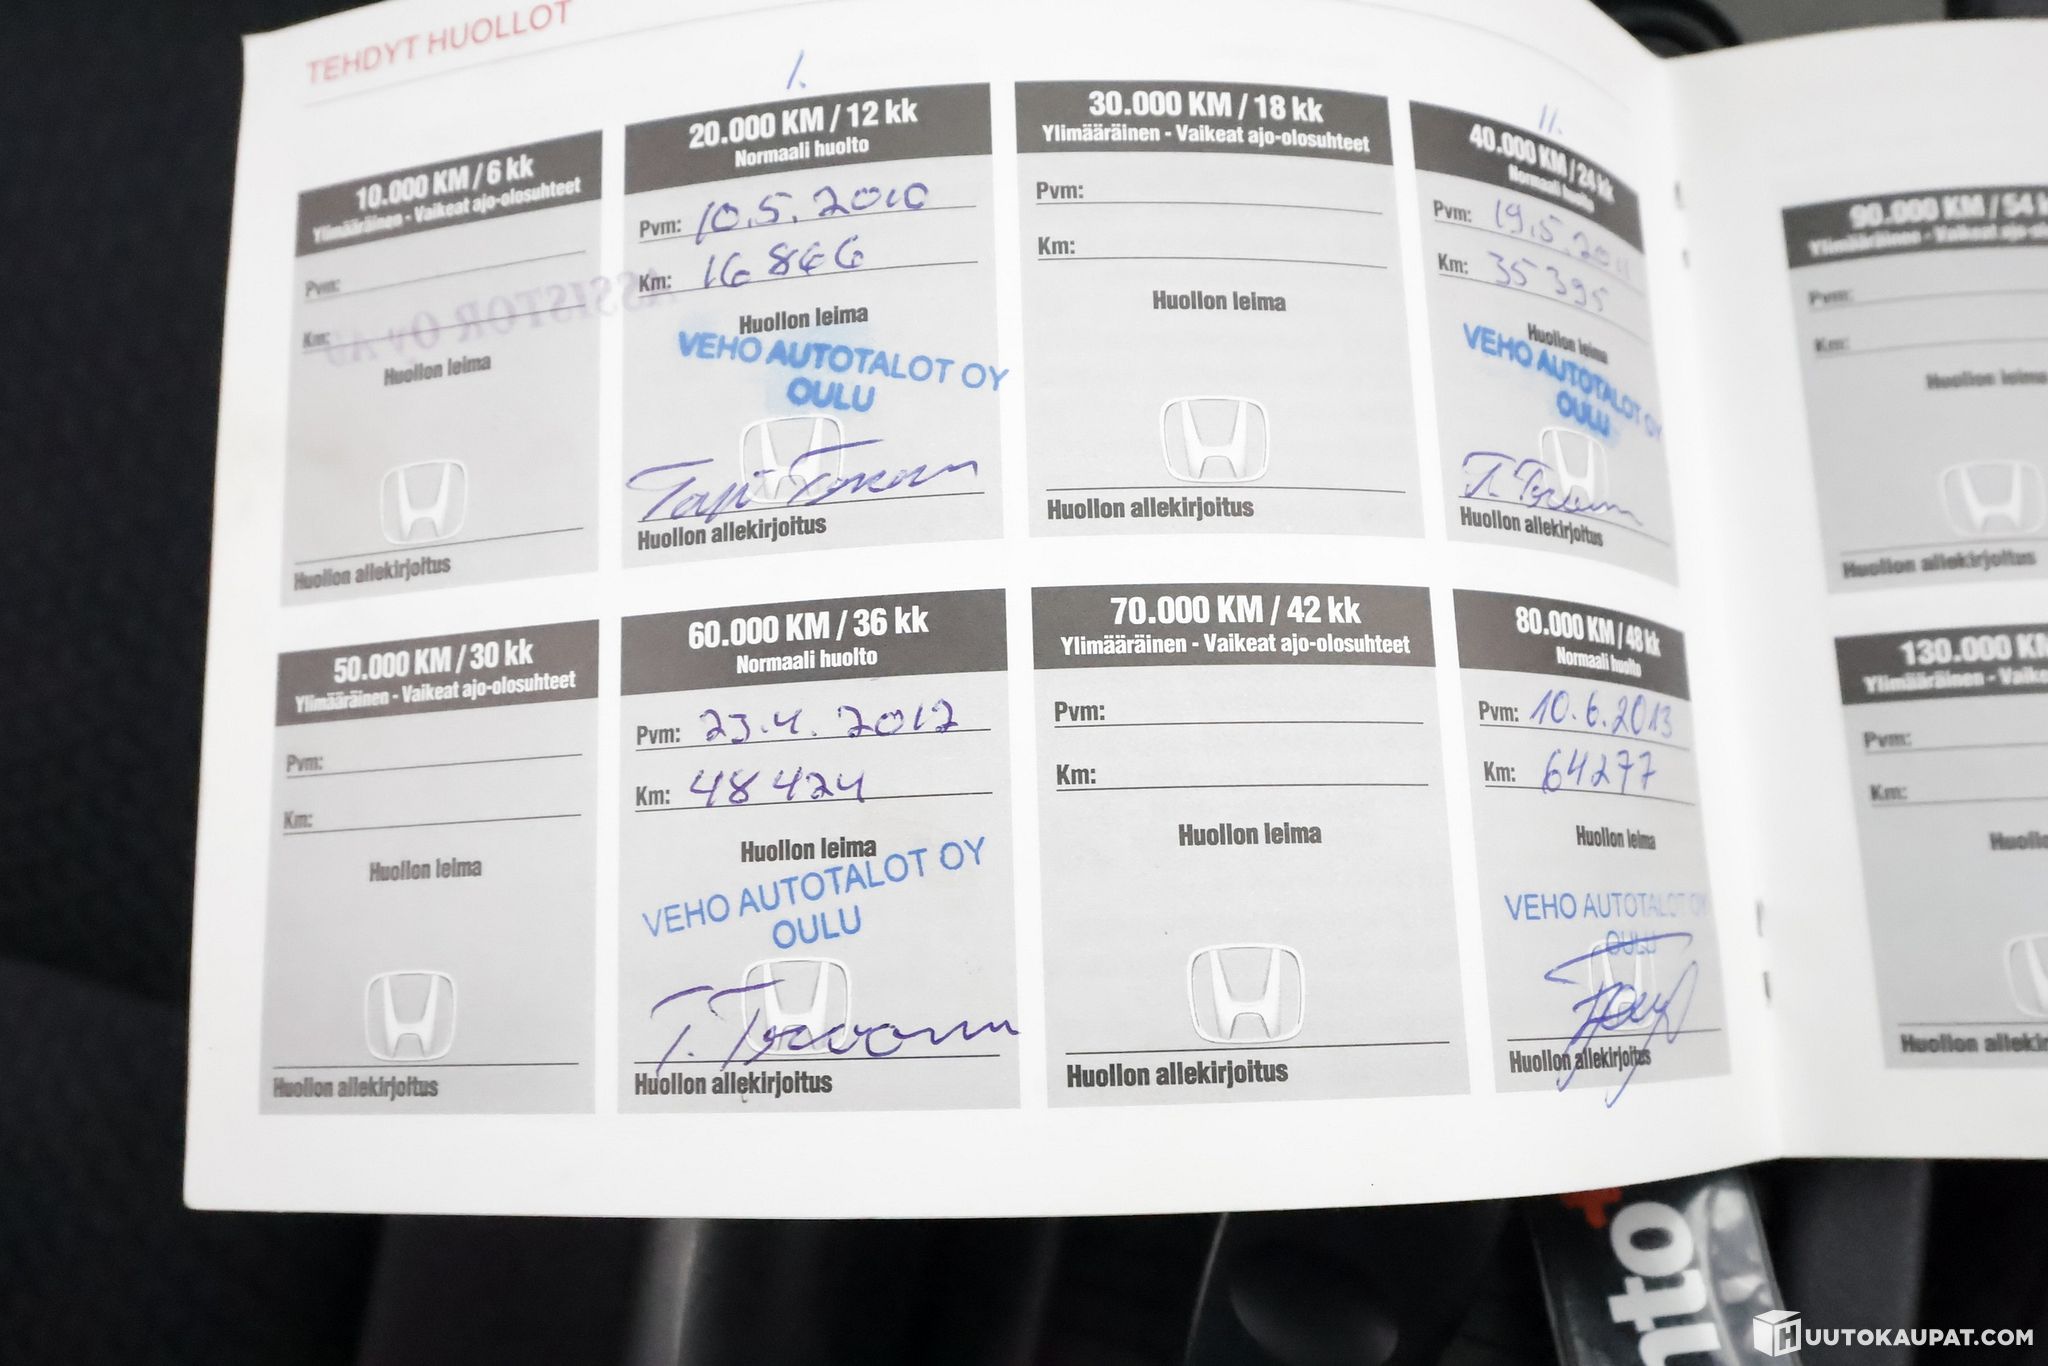 TEHDYT HUOLLOT
10.000 KM / 6 kk
Ylimääräinen - Vaikeat ajo-olosuhteet
Pvm:
Km:
ASSISTOR OY AB
Huollon leima
Huollon allekirjoitus
I.
20.000 KM / 12 kk
Normaali huolto
Pvm: 10.5.2010
Km: 16 866
Huollon leima
VEHO AUTOTALOT OY
OULU
Huollon allekirjoitus
30.000 KM / 18 kk
Ylimääräinen - Vaikeat ajo-olosuhteet
Pvm:
Km:
Huollon leima
Huollon allekirjoitus
II.
40.000 KM / 24 kk
Normaali huolto
Pvm: 19.5.2011
Km: 35 395
Huollon leima
VEHO AUTOTALOT OY
OULU
Huollon allekirjoitus
50.000 KM / 30 kk
Ylimääräinen - Vaikeat ajo-olosuhteet
Pvm:
Km:
Huollon leima
Huollon allekirjoitus
60.000 KM / 36 kk
Normaali huolto
Pvm: 23.4.2012
Km: 48 424
Huollon leima
VEHO AUTOTALOT OY
OULU
Huollon allekirjoitus
70.000 KM / 42 kk
Ylimääräinen - Vaikeat ajo-olosuhteet
Pvm:
Km:
Huollon leima
Huollon allekirjoitus
80.000 KM / 48 kk
Normaali huolto
Pvm: 10.6.2013
Km: 64277
Huollon leima
VEHO AUTOTALOT OY
OULU
Huollon allekirjoitus
90.000 KM / 54 k
Ylimääräinen - Vaikeat ajo-olo
Pvm:
Km:
Huollon leima
Huollon allekirjoitus
130.000 KM
Ylimääräinen - Vaike
Pvm:
Km:
Huollo
Huollon allekir
nto
HUUTOKAUPAT.COM